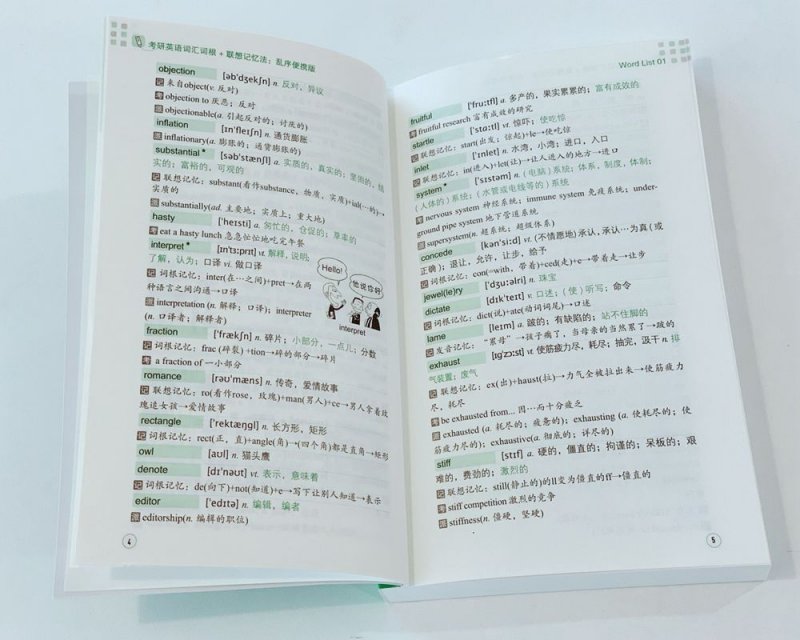 考研英语词汇词根 + 联想记忆法：乱序便携版
objection [əb'dʒekʃn] n. 反对，异议
记 来自object(v. 反对)
考 objection to 厌恶；反对
派 objectionable(a. 引起反对的；讨厌的)
inflation [ɪn'fleɪʃn] n. 通货膨胀
派 inflationary(a. 膨胀的；通货膨胀的)
substantial* [səb'stænʃl] a. 实质的，真实的；坚固的，结
实的；富裕的，可观的
记 联想记忆：substant(看作substance，物质，实质)+ial(…的)→
实质的
派 substantially(ad. 主要地；实质上；重大地)
hasty ['heɪsti] a. 匆忙的，仓促的；草率的
考 eat a hasty lunch 急急忙忙地吃完午餐
interpret* [ɪn'tɜːprɪt] vt. 解释，说明；
了解，认为；口译 vi. 做口译
记 词根记忆：inter(在…之间)+pret→在两
种语言之间沟通→口译
派 interpretation (n. 解释；口译)；interpreter
(n. 口译者；解释者)
Hello!
他说"你好"
interpret
fraction ['frækʃn] n. 碎片；小部分，一点儿；分数
记 词根记忆：frac (碎裂) +tion→碎的部分→碎片
考 a fraction of 一小部分
romance [rəʊ'mæns] n. 传奇，爱情故事
记 联想记忆：ro(看作rose，玫瑰)+man(男人)+ce→男人拿着玫
瑰送女孩→爱情故事
rectangle ['rektæŋɡl] n. 长方形，矩形
记 词根记忆：rect(正，直)+angle(角)→(四个角)都是直角→矩形
owl [aʊl] n. 猫头鹰
denote [dɪ'nəʊt] vt. 表示，意味着
记 词根记忆：de(向下)+not(知道)+e→写下让别人知道→表示
editor ['edɪtə] n. 编辑，编者
派 editorship(n. 编辑的职位)
4
Word List 01
fruitful ['fruːtfl] a. 多产的，果实累累的；富有成效的
考 fruitful research 富有成效的研究
startle ['stɑːtl] vt. 惊吓；使吃惊
记 联想记忆：start(出发；惊起)+le→使吃惊
inlet ['ɪnlet] n. 水湾，小湾；进口，入口
记 联想记忆：in(进入)+let(让)→让人进入的地方→进口
system* ['sɪstəm] n. (电脑) 系统；体系，制度，体制；
(人体的) 系统；(水管或电线等的) 系统
考 nervous system 神经系统；immune system 免疫系统；under-
ground pipe system 地下管道系统
派 supersystem(n. 超系统；超级体系)
concede [kən'siːd] v. (不情愿地) 承认，承认…为真(或
正确)；退让，允许，让步，给予
记 词根记忆：con(=with，带着)+ced(走)+e→带着走→让步
jewel(le)ry ['dʒuːəlri] n. 珠宝
dictate [dɪk'teɪt] v. 口述；(使) 听写；命令
记 词根记忆：dict(说)+ate(动词词尾)→口述
lame [leɪm] a. 跛的；有缺陷的；站不住脚的
记 发音记忆："累母"→孩子瘸了，当母亲的当然累了→跛的
exhaust [ɪɡ'zɔːst] vt. 使筋疲力尽，耗尽；抽完，汲干 n. 排
气装置；废气
记 联想记忆：ex(出)+haust(拉)→力气全被拉出来→使筋疲力
尽，耗尽
考 be exhausted from... 因…而十分疲乏
派 exhausted (a. 耗尽的；疲惫的)；exhausting (a. 使耗尽的；使
筋疲力尽的)；exhaustive(a. 彻底的；详尽的)
stiff [stɪf] a. 硬的，僵直的；拘谨的；呆板的；艰
难的，费劲的；激烈的
记 联想记忆：still(静止的)的ll变为僵直的ff→僵直的
考 stiff competition 激烈的竞争
派 stiffness(n. 僵硬，坚硬)
5